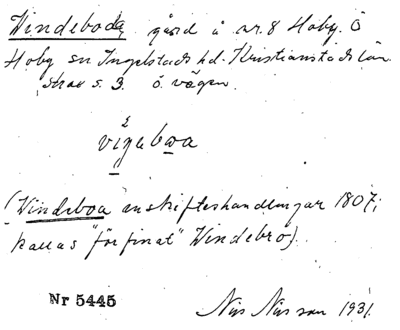 Windeboda gård å nr. 8 Hoby. Ö
Hoby sn Ingelstads hd. Kristianstads län
strax s. 3. ö. vägen.
vigeboa
(Windeboa enskifteshandlingar 1807;
kallas "förfinat" Windebro).
Nr 5445
Nils Nilsson 1931.